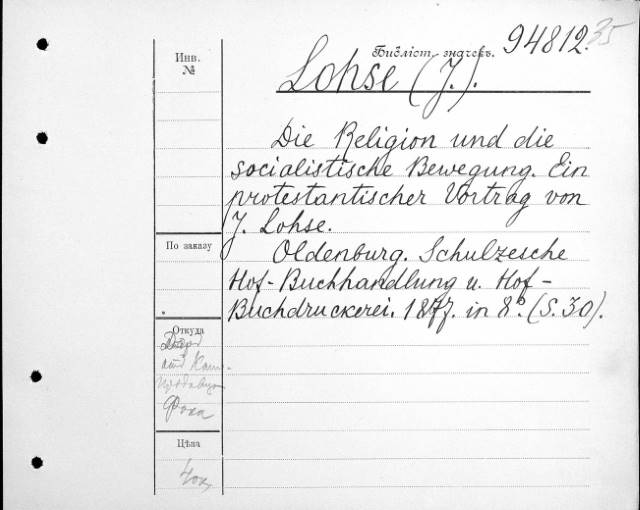 Инв.
№
Библіст. значекъ.
94812.35
Lohse (J.).
Die Religion und die
socialistische Bewegung. Ein
protestantischer Vortrag von
J. Lohse.
По заказу
Oldenburg. Schulzesche
Hof-Buchhandlung u. Hof-
Buchdruckerei. 1877. in 8°. (S. 30).
Откуда
Фока
Цѣна
40к.